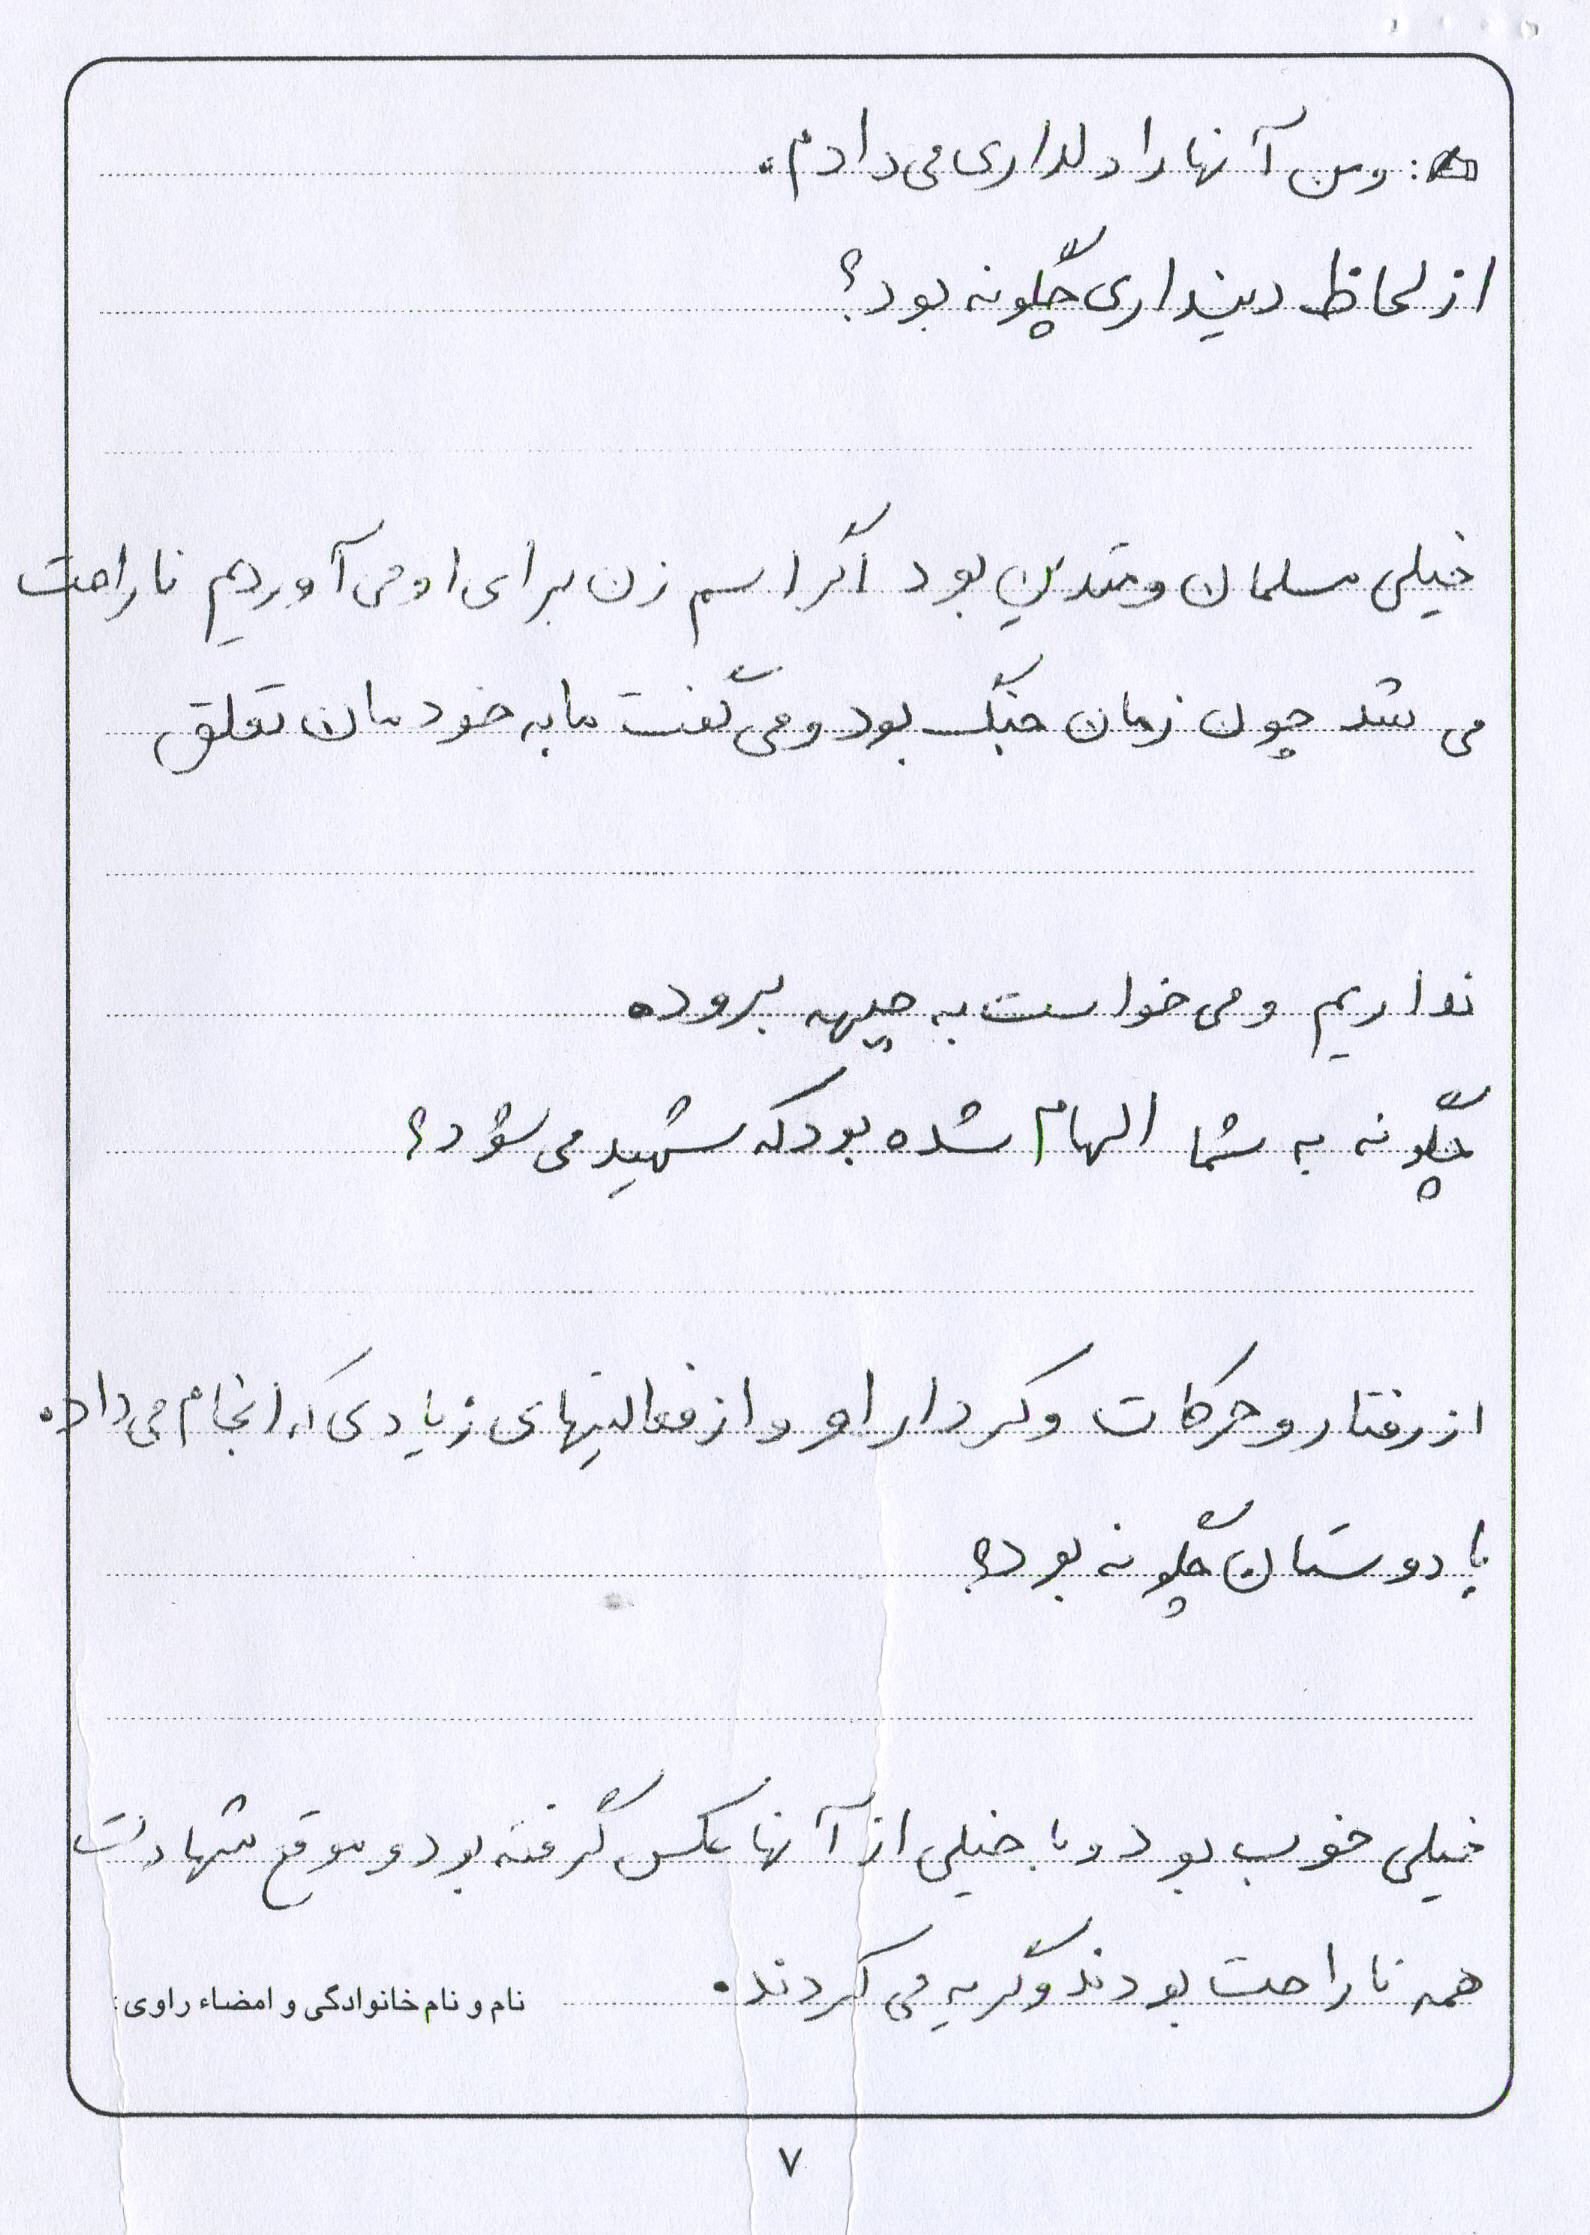 ✍: ومن آنها را دلداری می دادم.
از لحاظ دینداری چگونه بود؟
خیلی مسلمان و متدین بود اگر اسم زن برای او می آوردیم ناراحت
می شد چون زمان جنگ بود و می گفت ما به خودمان تعلق
نداریم و می خواست به جبهه برود.
چگونه به شما الهام شده بود که شهید می شود؟
از رفتار و حرکات و کردار او و از فعالیتهای زیادی که انجام می داد.
با دوستان چگونه بود؟
خیلی خوب بود و با خیلی از آنها عکس گرفته بود و موقع شهادت
همه ناراحت بودند و گریه می کردند.
نام و نام خانوادگی و امضاء راوی:
۷